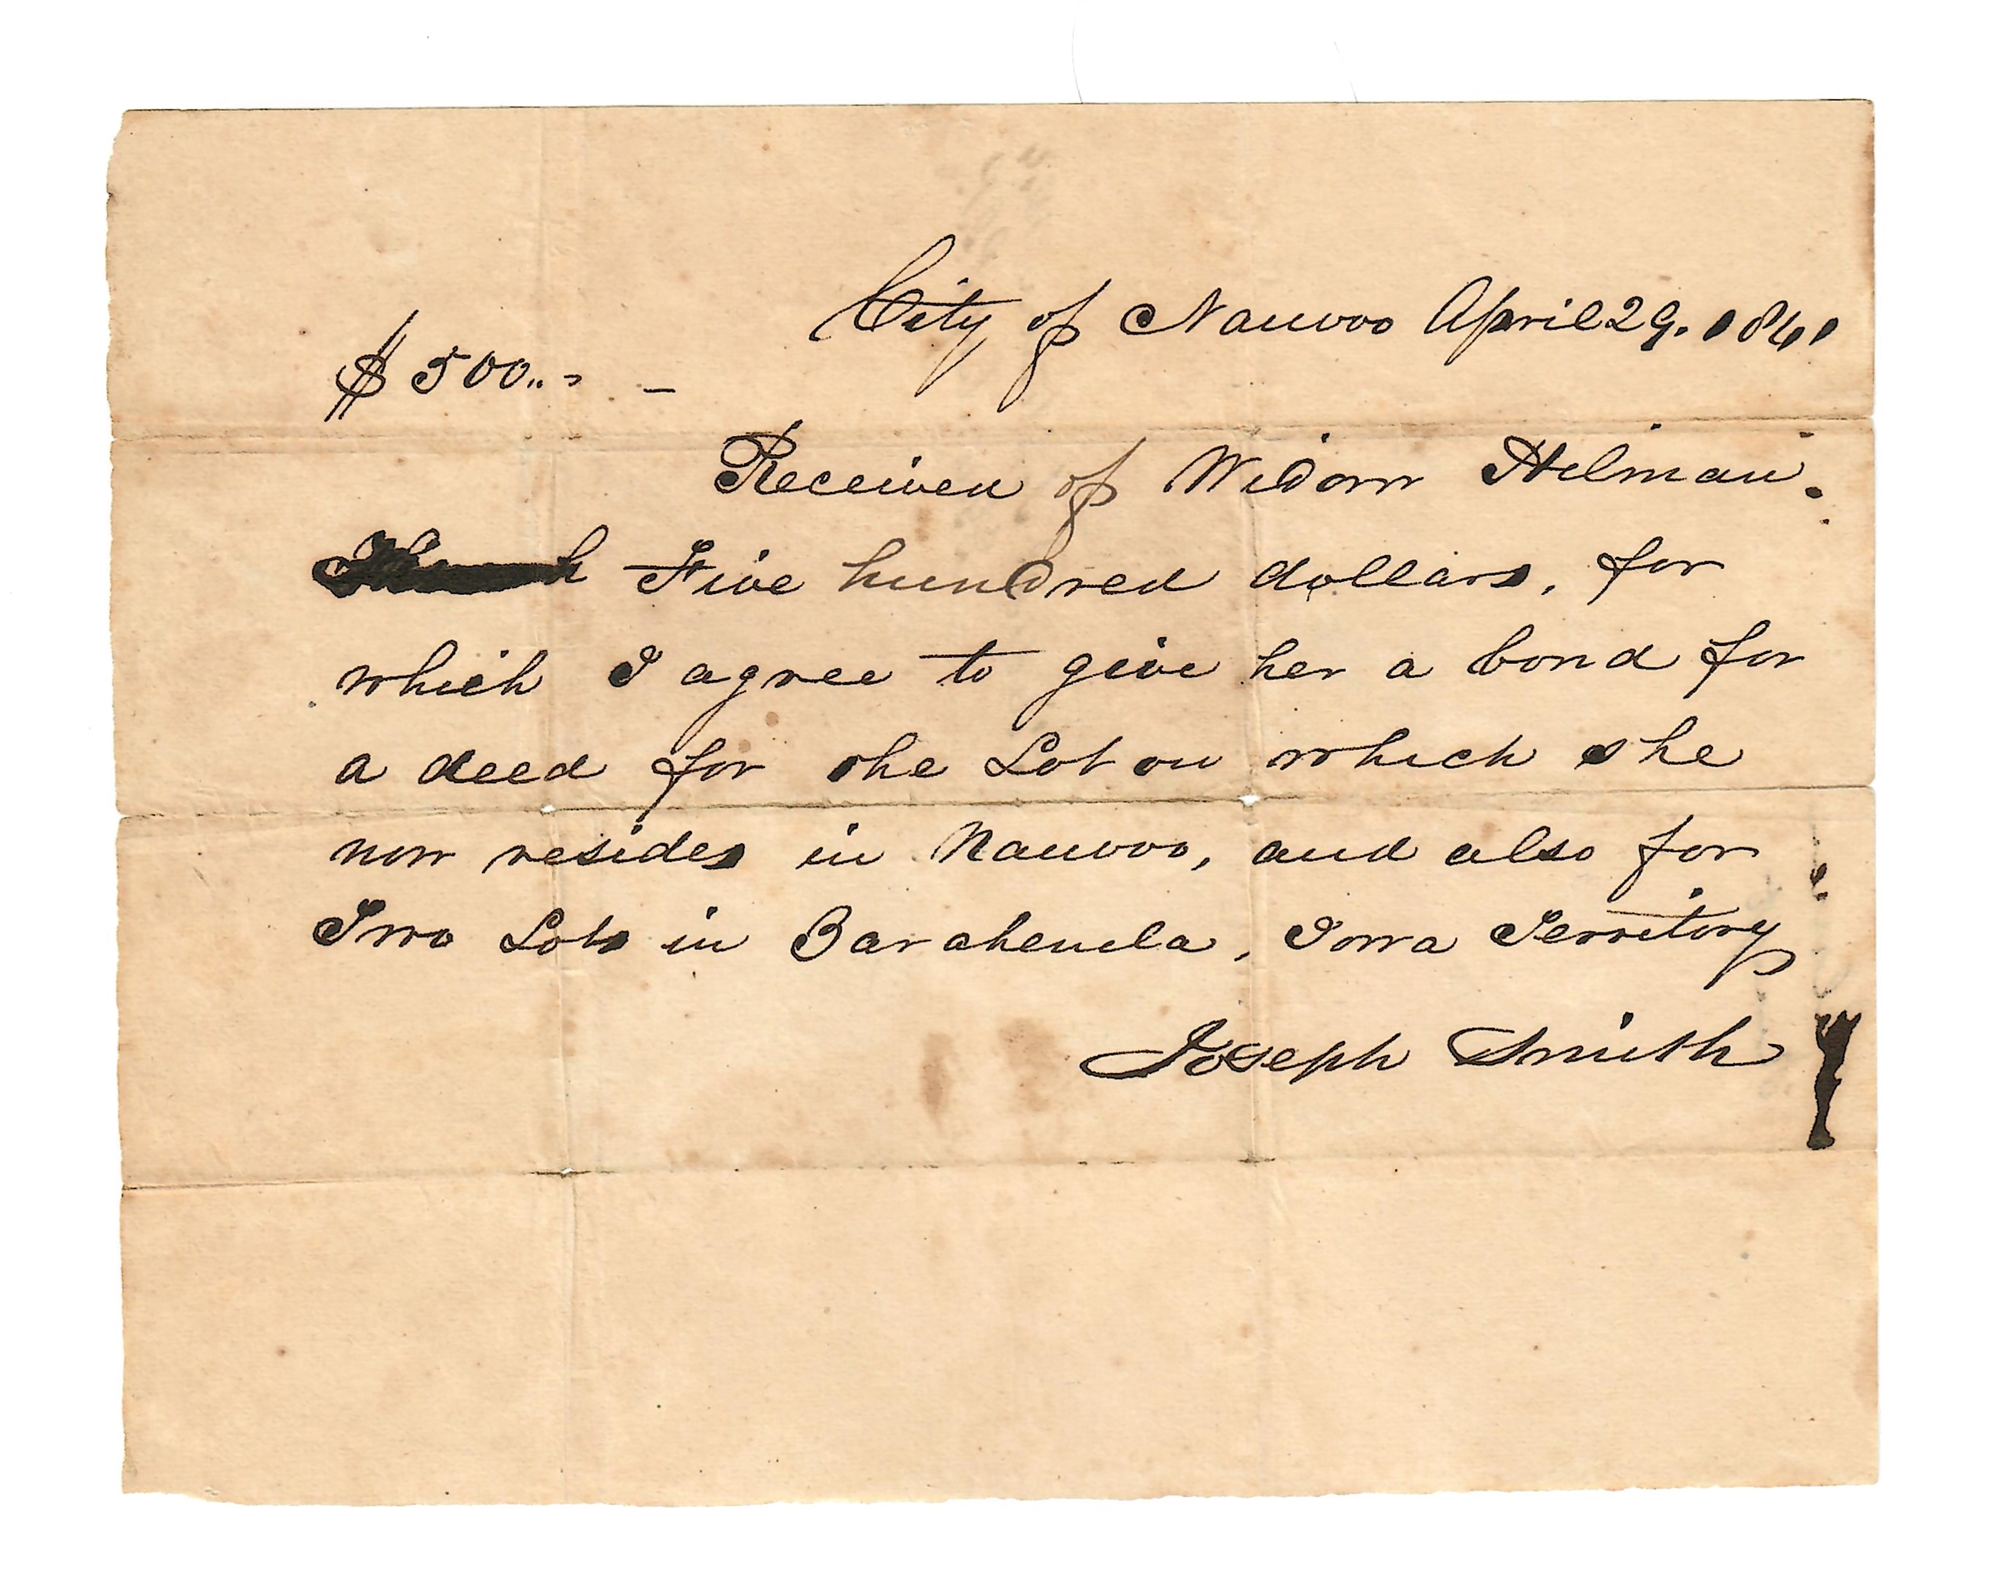 City of Nauvoo April 29. 1841
$500.. - -
Received of Widow Hilman.
Five hundred dollars, for
which I agree to give her a bond for
a deed for the Lot on which she
now resides in Nauvoo, and also for
Two Lots in Zarahemla, Iowa Territory
Joseph Smith